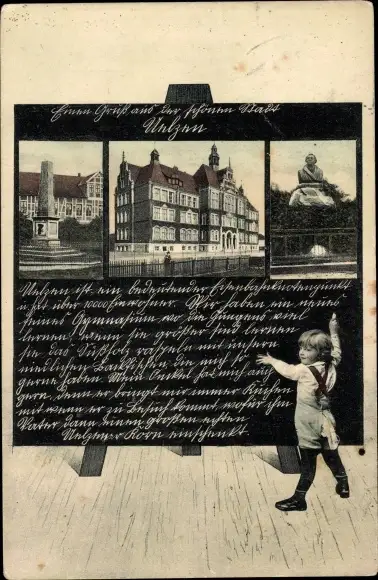 Einen Gruß aus der schönen Stadt
Uelzen
Uelzen ist ein bedeutender Eisenbahnknotenpunkt
u. hat über 10000 Einwohner. Wir haben ein neues
feines Gymnasium wo die Jungens viel
lernen, wenn sie größer sind lernen
sie das Süßholz raspeln mit unsern
niedlichen Backfischen, die mich so
gerne haben. Mein Onkel hat mich auch
gern, denn er bringt mir immer Kuchen
mit wenn er zu Besuch kommt, wofür ihm
Vater dann einen großen echten
Uelzener Korn einschenkt.